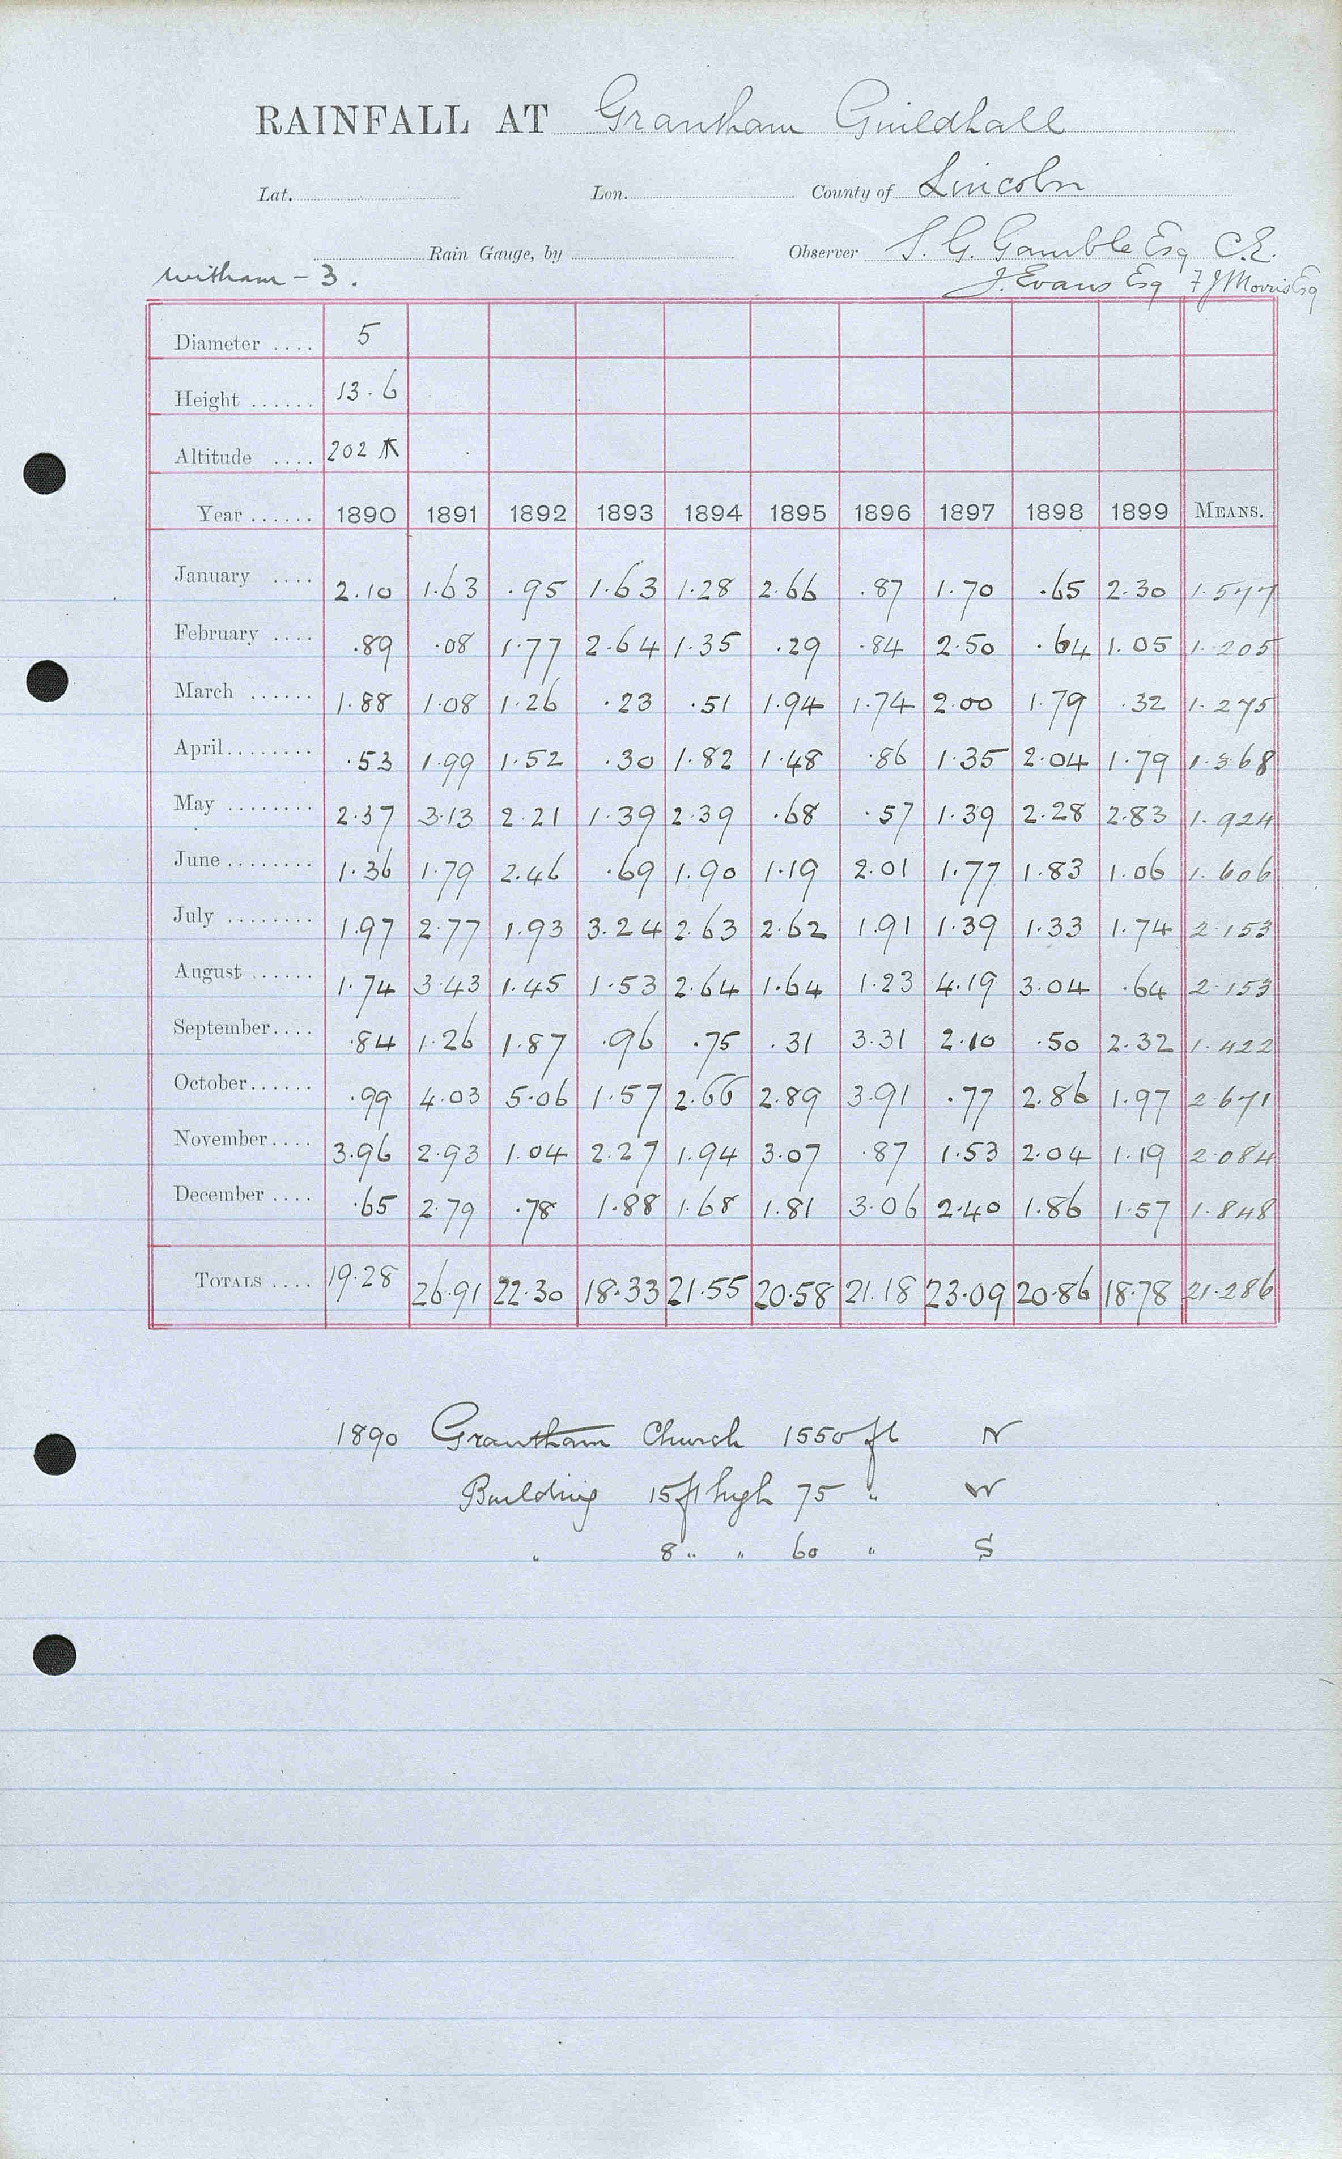 RAINFALL AT Grantham Guildhall
Lat. Lon. County of Lincoln
Rain Gauge, by Observer S. G. Gamble Esq C.E.
Witham - 3. J. Evans Esq F J Morris Esq
Diameter .... 5
Height ...... 13.6
Altitude .... 202
Year ...... 1890 1891 1892 1893 1894 1895 1896 1897 1898 1899 MEANS.
January .... 2.10 1.63 .95 1.63 1.28 2.66 .87 1.70 .65 2.30 1.577
February .... .89 .08 1.77 2.64 1.35 .29 .84 2.50 .64 1.05 1.205
March ...... 1.88 1.08 1.26 .23 .51 1.94 1.74 2.00 1.79 .32 1.275
April ........ .53 1.99 1.52 .30 1.82 1.48 .86 1.35 2.04 1.79 1.368
May ........ 2.37 3.13 2.21 1.39 2.39 .68 .57 1.39 2.28 2.83 1.924
June ........ 1.36 1.79 2.46 .69 1.90 1.19 2.01 1.77 1.83 1.06 1.606
July ........ 1.97 2.77 1.93 3.24 2.63 2.62 1.91 1.39 1.33 1.74 2.153
August ...... 1.74 3.43 1.45 1.53 2.64 1.64 1.23 4.19 3.04 .64 2.153
September .... .84 1.26 1.87 .96 .75 .31 3.31 2.10 .50 2.32 1.422
October ...... .99 4.03 5.06 1.57 2.66 2.89 3.91 .77 2.86 1.97 2.671
November .... 3.96 2.93 1.04 2.27 1.94 3.07 .87 1.53 2.04 1.19 2.084
December .... .65 2.79 .78 1.88 1.68 1.81 3.06 2.40 1.86 1.57 1.848
TOTALS .... 19.28 26.91 22.30 18.33 21.55 20.58 21.18 23.09 20.86 18.78 21.286
1890 Grantham Church 1550 ft N
Building 15 ft high 75 " W
" 8 " " 60 " S